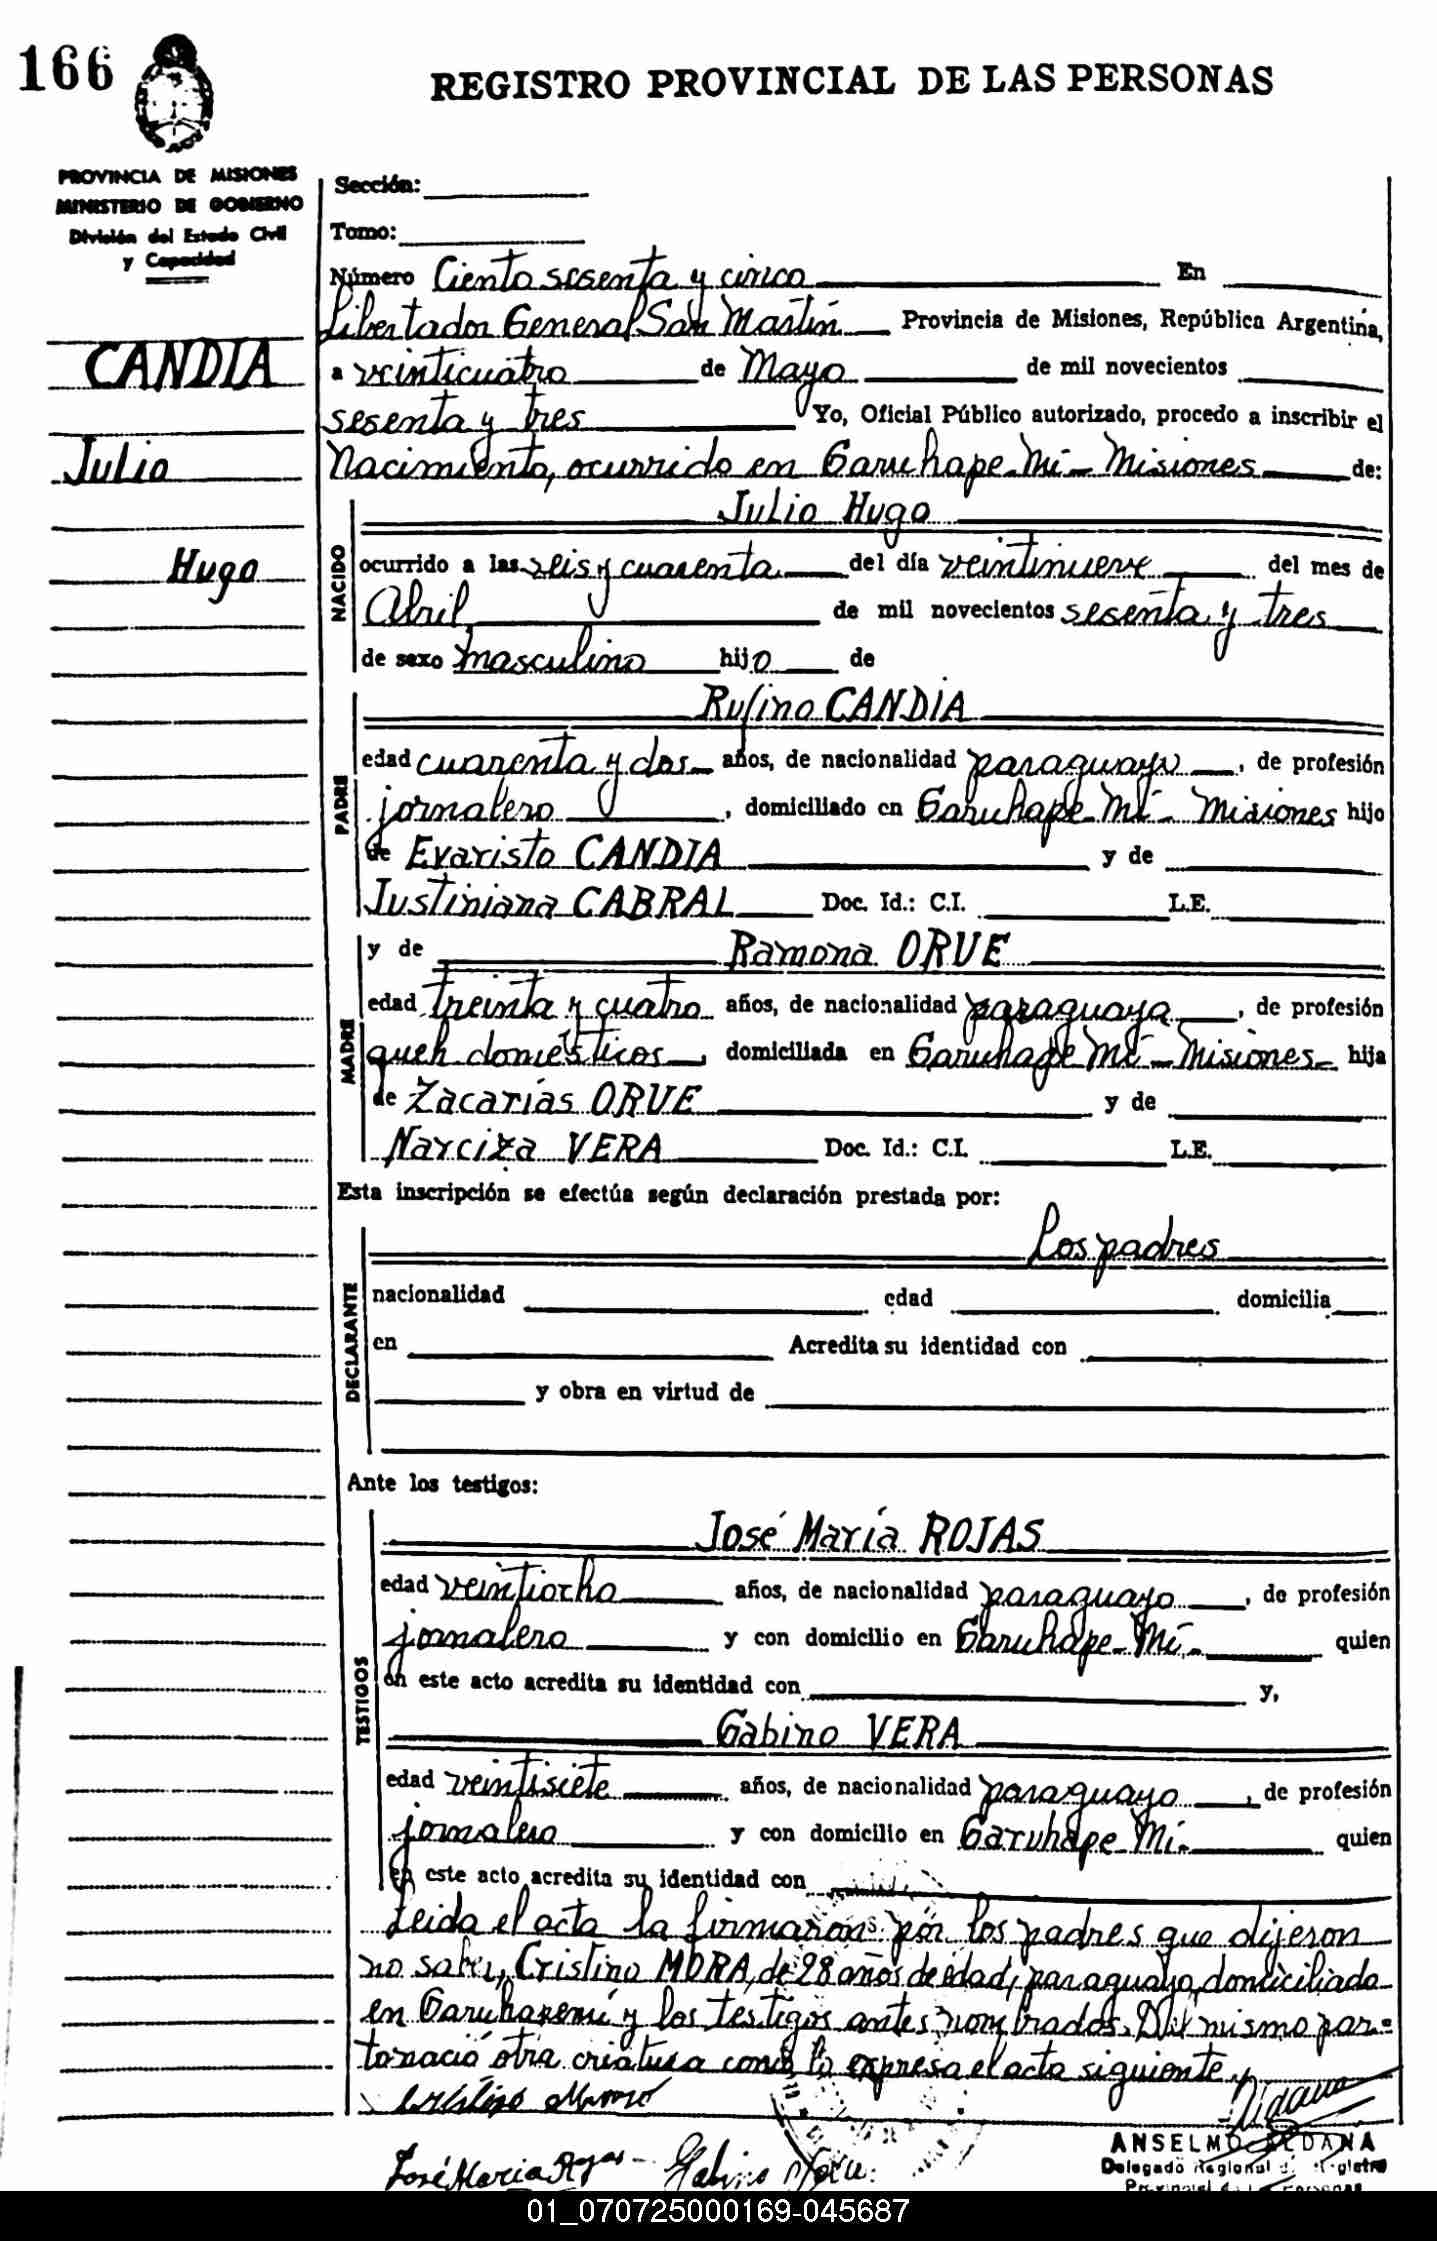 166
REGISTRO PROVINCIAL DE LAS PERSONAS
PROVINCIA DE MISIONES
MINISTERIO DE GOBIERNO
División del Estado Civil
y Capacidad
CANDIA
Julio
Hugo
Sección:
Tomo:
Número Ciento sesenta y cinco En
Libertador General San Martín Provincia de Misiones, República Argentina,
a veinticuatro de Mayo de mil novecientos
sesenta y tres Yo, Oficial Público autorizado, procedo a inscribir el
Nacimiento, ocurrido en Garuhape-Mí- Misiones de:
NACIDO
Julio Hugo
ocurrido a las seis y cuarenta del día veintinueve del mes de
Abril de mil novecientos sesenta y tres
de sexo masculino hijo de
PADRE
Rufino CANDIA
edad cuarenta y dos años, de nacionalidad paraguayo, de profesión
jornalero, domiciliado en Garuhape-Mí- Misiones hijo
de Evaristo CANDIA y de
Justiniana CABRAL Doc. Id.: C.I. L.E.
MADRE
y de Ramona ORUE
edad treinta y cuatro años, de nacionalidad paraguaya, de profesión
queh. domésticos, domiciliada en Garuhape Mí- Misiones- hija
de Zacarías ORUE y de
Narciza VERA Doc. Id.: C.I. L.E.
Esta inscripción se efectúa según declaración prestada por:
DECLARANTE
Los padres
nacionalidad edad domicilia
en Acredita su identidad con
y obra en virtud de
Ante los testigos:
TESTIGOS
José María ROJAS
edad veintiocho años, de nacionalidad paraguayo, de profesión
jornalero y con domicilio en Garuhape-Mí- quien
en este acto acredita su identidad con y,
Gabino VERA
edad veintisiete años, de nacionalidad paraguayo, de profesión
jornalero y con domicilio en Garuhape Mí- quien
en este acto acredita su identidad con
Leida el acta la firmaron: por los padres que dijeron
no saber, Cristino MORA, de 28 años de edad, paraguayo, domiciliado
en Garuhapemí y los testigos antes nombrados. Del mismo par-
to nació otra criatura como lo expresa el acta siguiente
José María Rojas - Gabino Vera
ANSELMO ALDANA
Delegado Regional del Registro
Provincial de las Personas
01_070725000169-045687